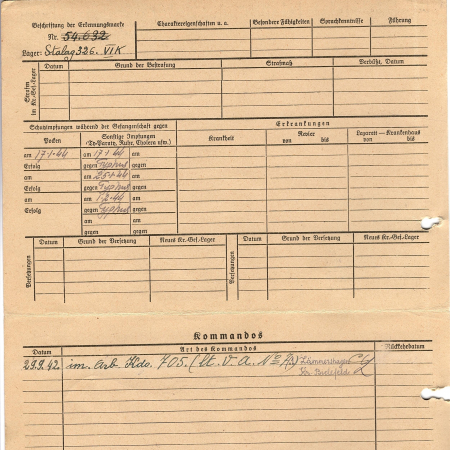 Beschriftung der Erkennungsmarke
Nr. 54.692
Lager: Stalag 326. VIK
Charaktereigenschaften u. a.
Besondere Fähigkeiten
Sprachkenntnisse
Führung
Strafen im Kr.-Gef.-Lager
Datum
Grund der Bestrafung
Strafmaß
Verbüßt, Datum
Schutzimpfungen während der Gefangenschaft gegen
Erkrankungen
Pocken
Sonstige Impfungen
(Ty-Paraty, Ruhr, Cholera usw.)
Krankheit
Revier
von bis
Lazarett — Krankenhaus
von bis
am 17.1.44 am 17.1.44 am
Erfolg gegen Typhus gegen
am am 25.1.44 am
Erfolg gegen Typhus gegen
am am 1.2.44 am
Erfolg gegen Typhus gegen
am am am
gegen gegen gegen
Versetzungen
Datum
Grund der Versetzung
Neues Kr.-Gef.-Lager
Versetzungen
Datum
Grund der Versetzung
Neues Kr.-Gef.-Lager
Kommandos
Datum
Art des Kommandos
Rückkehrdatum
29.9.42. im. Arb. Kdo. 705. (lt. V. A. No
Lämmershagen
Kr. Bielefeld